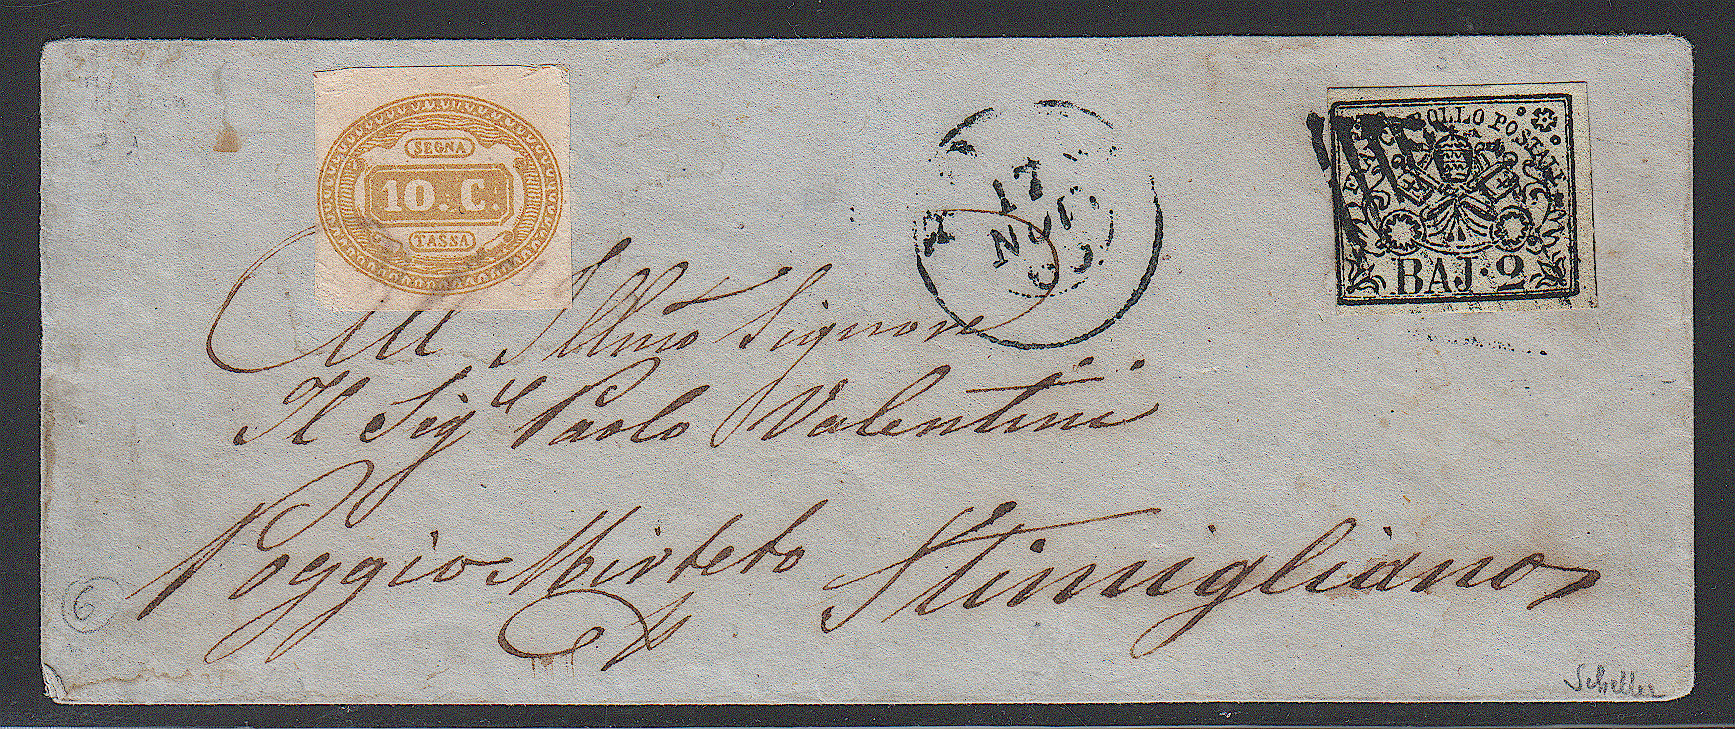 SEGNA
10. C.
TASSA
17
FRANCO BOLLO POSTALE
BAJ. 2
All Illmo Signore
Il Sigr Paolo Valentini
Poggio Mirteto Stimigliano
6
Scheller